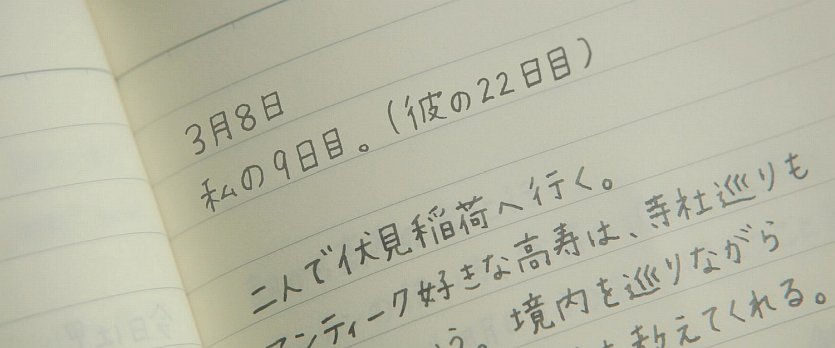 3月8日
私の9日目。(彼の22日目)
二人で伏見稲荷へ行く。
アンティーク好きな高寿は、寺社巡りも
う。境内を巡りながら
教えてくれる。